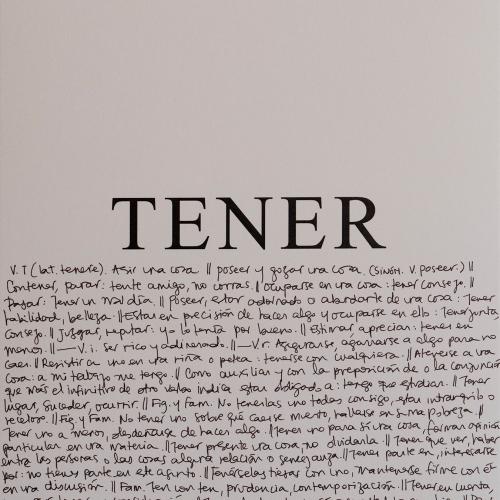 TENER
V. T (lat. tenere). Asir una cosa. || poseer y gozar una cosa. (SINÓN. V. poseer.) ||
Contener, parar: tente amigo, no corras. || Ocuparse en una cosa: tener consejo. ||
Pasar: Tener un mal día. || Poseer, estar adornado o abundante de una cosa: Tener
habilidad, belleza. || Estar en precisión de hacer algo y ocuparse en ello: Tener junta,
consejo. || Juzgar, reputar: yo lo tenía por bueno. || Estimar apreciar: tener en
menos. || — V. i. ser rico y adinerado. || — V. r. Asegurarse, agarrarse a algo para no
caer. || Resistir a uno en una riña o pelea: tenerse con cualquiera. || Atenerse a una
cosa: a mi trabajo me tengo. || Como auxiliar y con la preposición de o la conjunción
que más el infinitivo de otro verbo indica estar obligado a: tengo que estudiar. || Tener
lugar, suceder, ocurrir. || Fig. y fam. No tenerlas uno todas consigo, estar intranquilo o
receloso. || Fig. y Fam. No tener uno sobre qué caerse muerto, hallarse en suma pobreza. ||
Tener uno a menos, desdeñarse de hacer algo. || Tener uno para sí una cosa, formar opinión
particular en una materia. || Tener presente una cosa, no olvidarla. || Tener que ver, haber
entre las personas o las cosas alguna relación o semejanza. || Tener parte en, interesarse
por: no tienes parte en este asunto. || Tenérselas tiesas con uno, mantenerse firme con él
en una discusión. || Fam. Ten con ten, prudencia, contemporización. || Tener en cuenta,